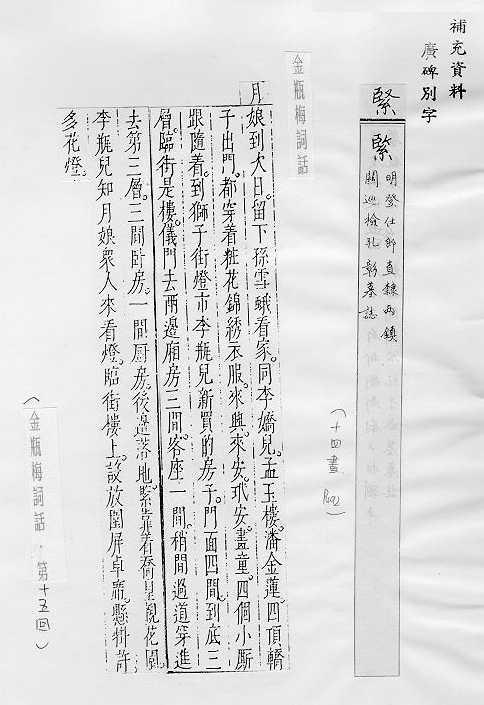 補充資料
廣碑別字
緊
緊
明登仕郎直隸兩鎮
關巡檢孔彰墓誌
(十四畫
金瓶梅詞話
月
娘到次日留下孫雪娥看家同李嬌兒孟玉樓潘金蓮四頂轎
子出門都穿着粧花錦綉衣服來興來安玳安畫童四個小厮
跟隨着到獅子街燈市李瓶兒新買的房子門面四間到底三
層臨街是樓儀門去兩邊廂房三間客座一間稍間過道穿進
去第三層三間卧房一間厨房後邊落地緊靠着喬皇親花園
李瓶兒知月娘衆人來看燈臨街樓上設放圍屏卓席懸掛許
多花燈
(金瓶梅詞話·第十五回)